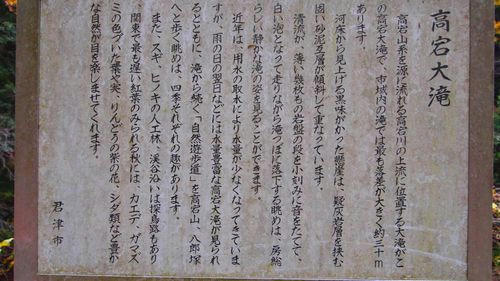 高宕大滝
高宕山系を源に流れる高宕川の上流に位置する大滝がこ
の高宕大滝で、市域内の滝では最も落差が大きく約三十m
あります。
河床から見上げる黒味がかった懸崖は、凝灰岩層を挟む
固い砂泥互層が傾斜して重なっています。
清流が、薄い幾枚もの岩盤の段を小刻みに音をたてて、
白い泡となって走りながら滝つぼに落下する眺めは、房総
らしい静かな滝の姿を見ることができます。
近年は、用水の取水により水量が少なくなってきていま
すが、雨の日の翌日などには水量豊富な高宕大滝が見られ
るとともに、滝から続く「自然遊歩道」を高宕山、八郎塚
へと歩く眺めは、四季それぞれの趣があります。
また、スギ、ヒノキの人工林、渓谷沿いは探鳥路もあり
関東で最も遅い紅葉のみられる秋には、カエデ、ガマズ
ミの色づいた葉や実、りんどうの紫の花、シダ類など豊か
な自然が目を楽しませてくれます。
君津市